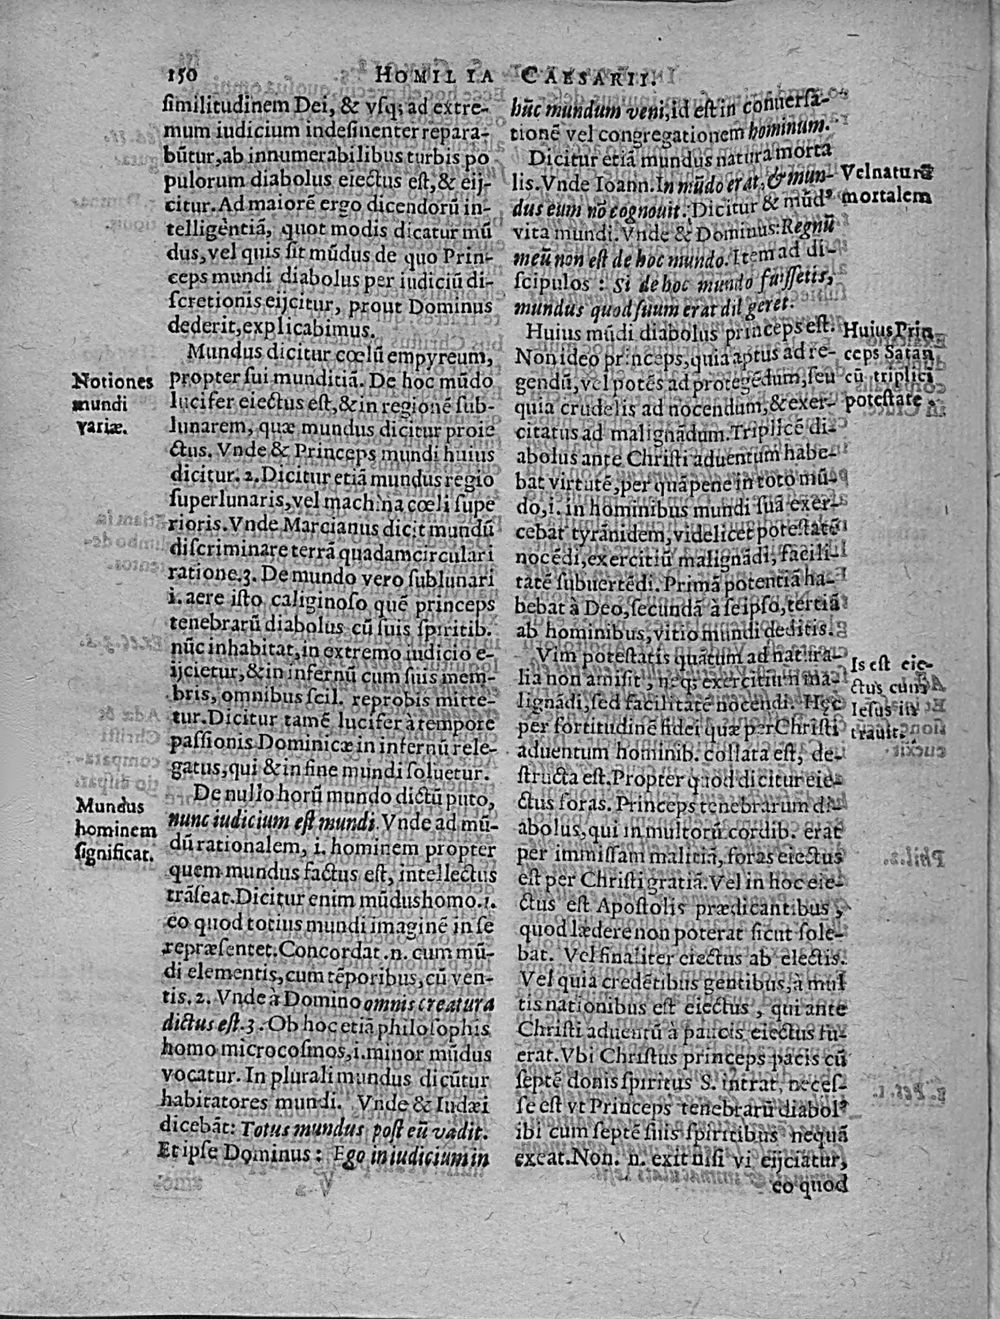 150 HOMILIA CAESARII.
similitudinem Dei, & vsq; ad extre-
mum iudicium indesinenter repara-
būtur, ab innumerabilibus turbis po
pulorum diabolus eiectus est, & eij-
citur. Ad maiorē ergo dicendorū in-
telligētiā, quot modis dicatur mū
dus, vel quis sit mūdus de quo Prin-
ceps mundi diabolus per iudiciū di-
scretionis eijcitur, prout Dominus
dederit, explicabimus.
Mundus dicitur cœlū empyreum,
propter sui munditiā. De hoc mūdo
lucifer eiectus est, & in regionē sub-
lunarem, quæ mundus dicitur proie
ctus. Vnde & Princeps mundi huius
dicitur. 2. Dicitur etiā mundus regio
superlunaris, vel machina cœli supe
rioris. Vnde Marcianus dicit mundū
discriminare terrā quadam circulari
ratione. 3. De mundo vero sublunari
i. aere isto caliginoso quē princeps
tenebrarū diabolus cū suis spiritib.
nūc inhabitat, in extremo iudicio e-
ijcietur, & in infernū cum suis mem-
bris, omnibus scil. reprobis mitte-
tur. Dicitur tamē lucifer à tempore
passionis Dominicæ in infernū rele-
gatus, qui & in fine mundi soluetur.
De nullo horū mundo dictū puto,
nunc iudicium est mundi. Vnde ad mū-
dū rationalem, i. hominem propter
quem mundus factus est, intellectus
trāseat. Dicitur enim mūdus homo. 1.
eo quod totius mundi imaginē in se
repræsentet. Concordat .n. cum mū-
di elementis, cum tēporibus, cū ven-
tis. 2. Vnde a Domino omnis creatura
dictus est. 3. Ob hoc etiā philosophis
homo microcosmos, i. minor mūdus
vocatur. In plurali mundus dicūtur
habitatores mundi. Vnde & Iudæi
dicebāt: Totus mundus post eū vadit.
Et ipse Dominus: Ego in iudicium in
Notiones
mundi
variæ.
Mundus
hominem
significat.
hūc mundum veni, id est in conuersā-
tionē vel congregationem hominum.
Dicitur etiā mundus natura morta
lis. Vnde Ioann. In mūdo erat, & mun-
dus eum nō cognouit. Dicitur & mūdꝰ
vita mundi. Vnde & Dominus: Regnū
meū non est de hoc mundo. Item ad di-
scipulos: Si de hoc mundo fuissetis,
mundus quod suum erat dilgeret.
Huius mūdi diabolus princeps est.
Non ideo princeps, quia aptus ad re-
gendū, vel potēs ad protegēdum, seu
quia crudelis ad nocendum, & exer-
citatus ad malignādum. Triplicē di-
abolus ante Christi aduentum habe-
bat virtutē, per quā pene in toto mū-
do, i. in hominibus mundi suā exer-
cebat tyrānidem, videlicet potestatē
nocēdi, exercitiū malignādi, facili-
tatē subuertēdi. Primā potentiā ha-
bebat à Deo, secundā à seipso, tertiā
ab hominibus, vitio mundi deditis.
Vim potestatis quātum ad natura-
lia non amisit, neq; exercitium ma-
lignādi, sed facilitatē nocendi. Hęc
per fortitudinē fidei quæ per Christi
aduentum hominib. collata est, de-
structa est. Propter quod dicitur eie-
ctus foras. Princeps tenebrarum di-
abolus, qui in multorū cordib. erat
per immissam malitiā, foras eiectus
est per Christi gratiā. Vel in hoc eie-
ctus est Apostolis prædicantibus,
quod lædere non poterat sicut sole-
bat. Vel finaliter eiectus ab electis.
Vel quia credētibus gentibus, à mul
tis nationibus est eiectus, qui ante
Christi aduentū à paucis eiectus fu-
erat. Vbi Christus princeps pacis cū
septē donis spiritus S. intrat, neces-
se est vt Princeps tenebrarū diabolꝰ
ibi cum septē suis spiritibus nequā
exeat. Non .n. exit nisi vi eijciatur,
eo quod
Vel naturā
mortalem
Huius Prin
ceps Satan
cū triplici
potestate.
Is est eie-
ctus cum
Iesus in
trauit.